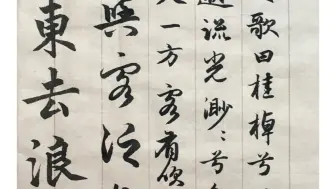 歌曰桂棹兮
遡流光渺〻兮
一方客有吹
與客泛
東去浪